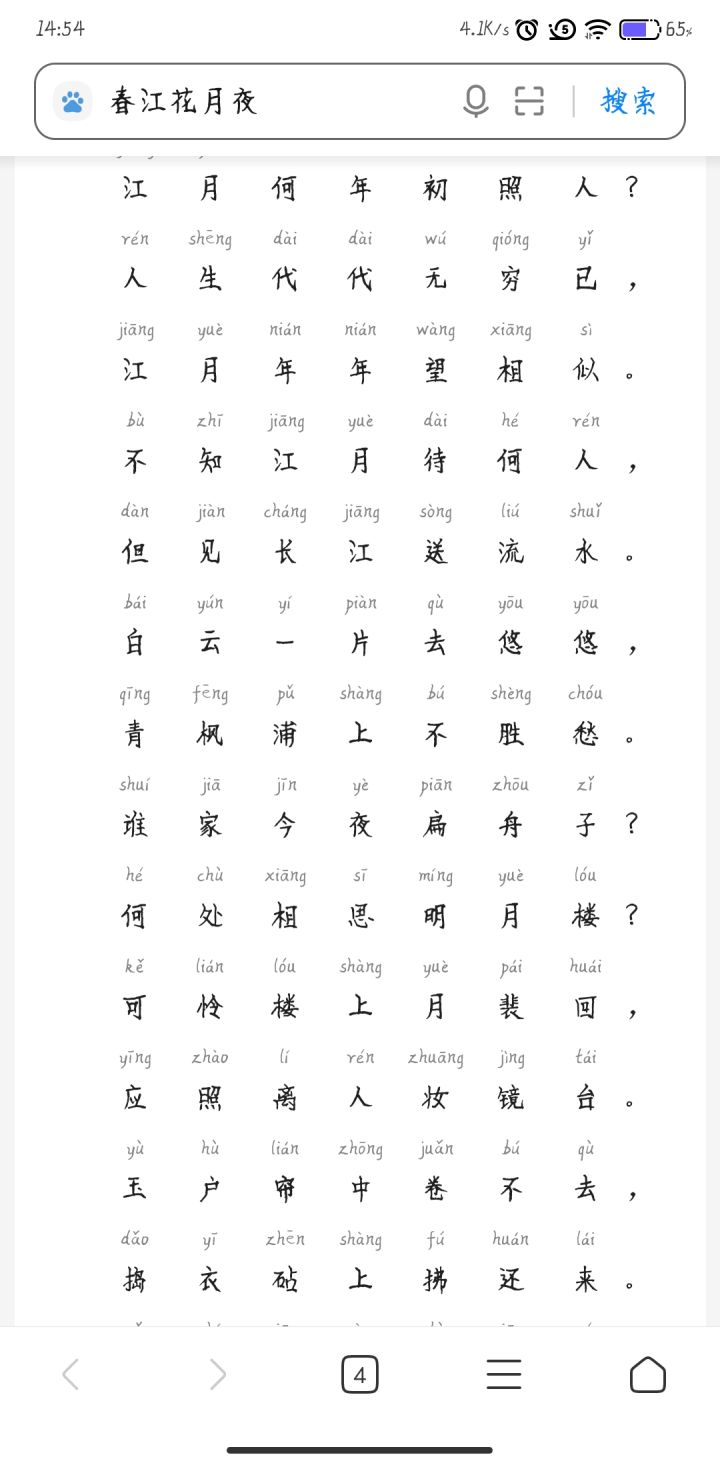 14:54 4.1K/s 5 65%
春江花月夜 搜索
江 月 何 年 初 照 人 ？
rén shēng dài dài wú qióng yǐ
人 生 代 代 无 穷 已 ，
jiāng yuè nián nián wàng xiāng sì
江 月 年 年 望 相 似 。
bù zhī jiāng yuè dài hé rén
不 知 江 月 待 何 人 ，
dàn jiàn cháng jiāng sòng liú shuǐ
但 见 长 江 送 流 水 。
bái yún yí piàn qù yōu yōu
白 云 一 片 去 悠 悠 ，
qīng fēng pǔ shàng bú shèng chóu
青 枫 浦 上 不 胜 愁 。
shuí jiā jīn yè piān zhōu zǐ
谁 家 今 夜 扁 舟 子 ？
hé chù xiāng sī míng yuè lóu
何 处 相 思 明 月 楼 ？
kě lián lóu shàng yuè pái huái
可 怜 楼 上 月 裴 回 ，
yīng zhào lí rén zhuāng jìng tái
应 照 离 人 妆 镜 台 。
yù hù lián zhōng juǎn bú qù
玉 户 帘 中 卷 不 去 ，
dǎo yī zhēn shàng fú huán lái
捣 衣 砧 上 拂 还 来 。
4